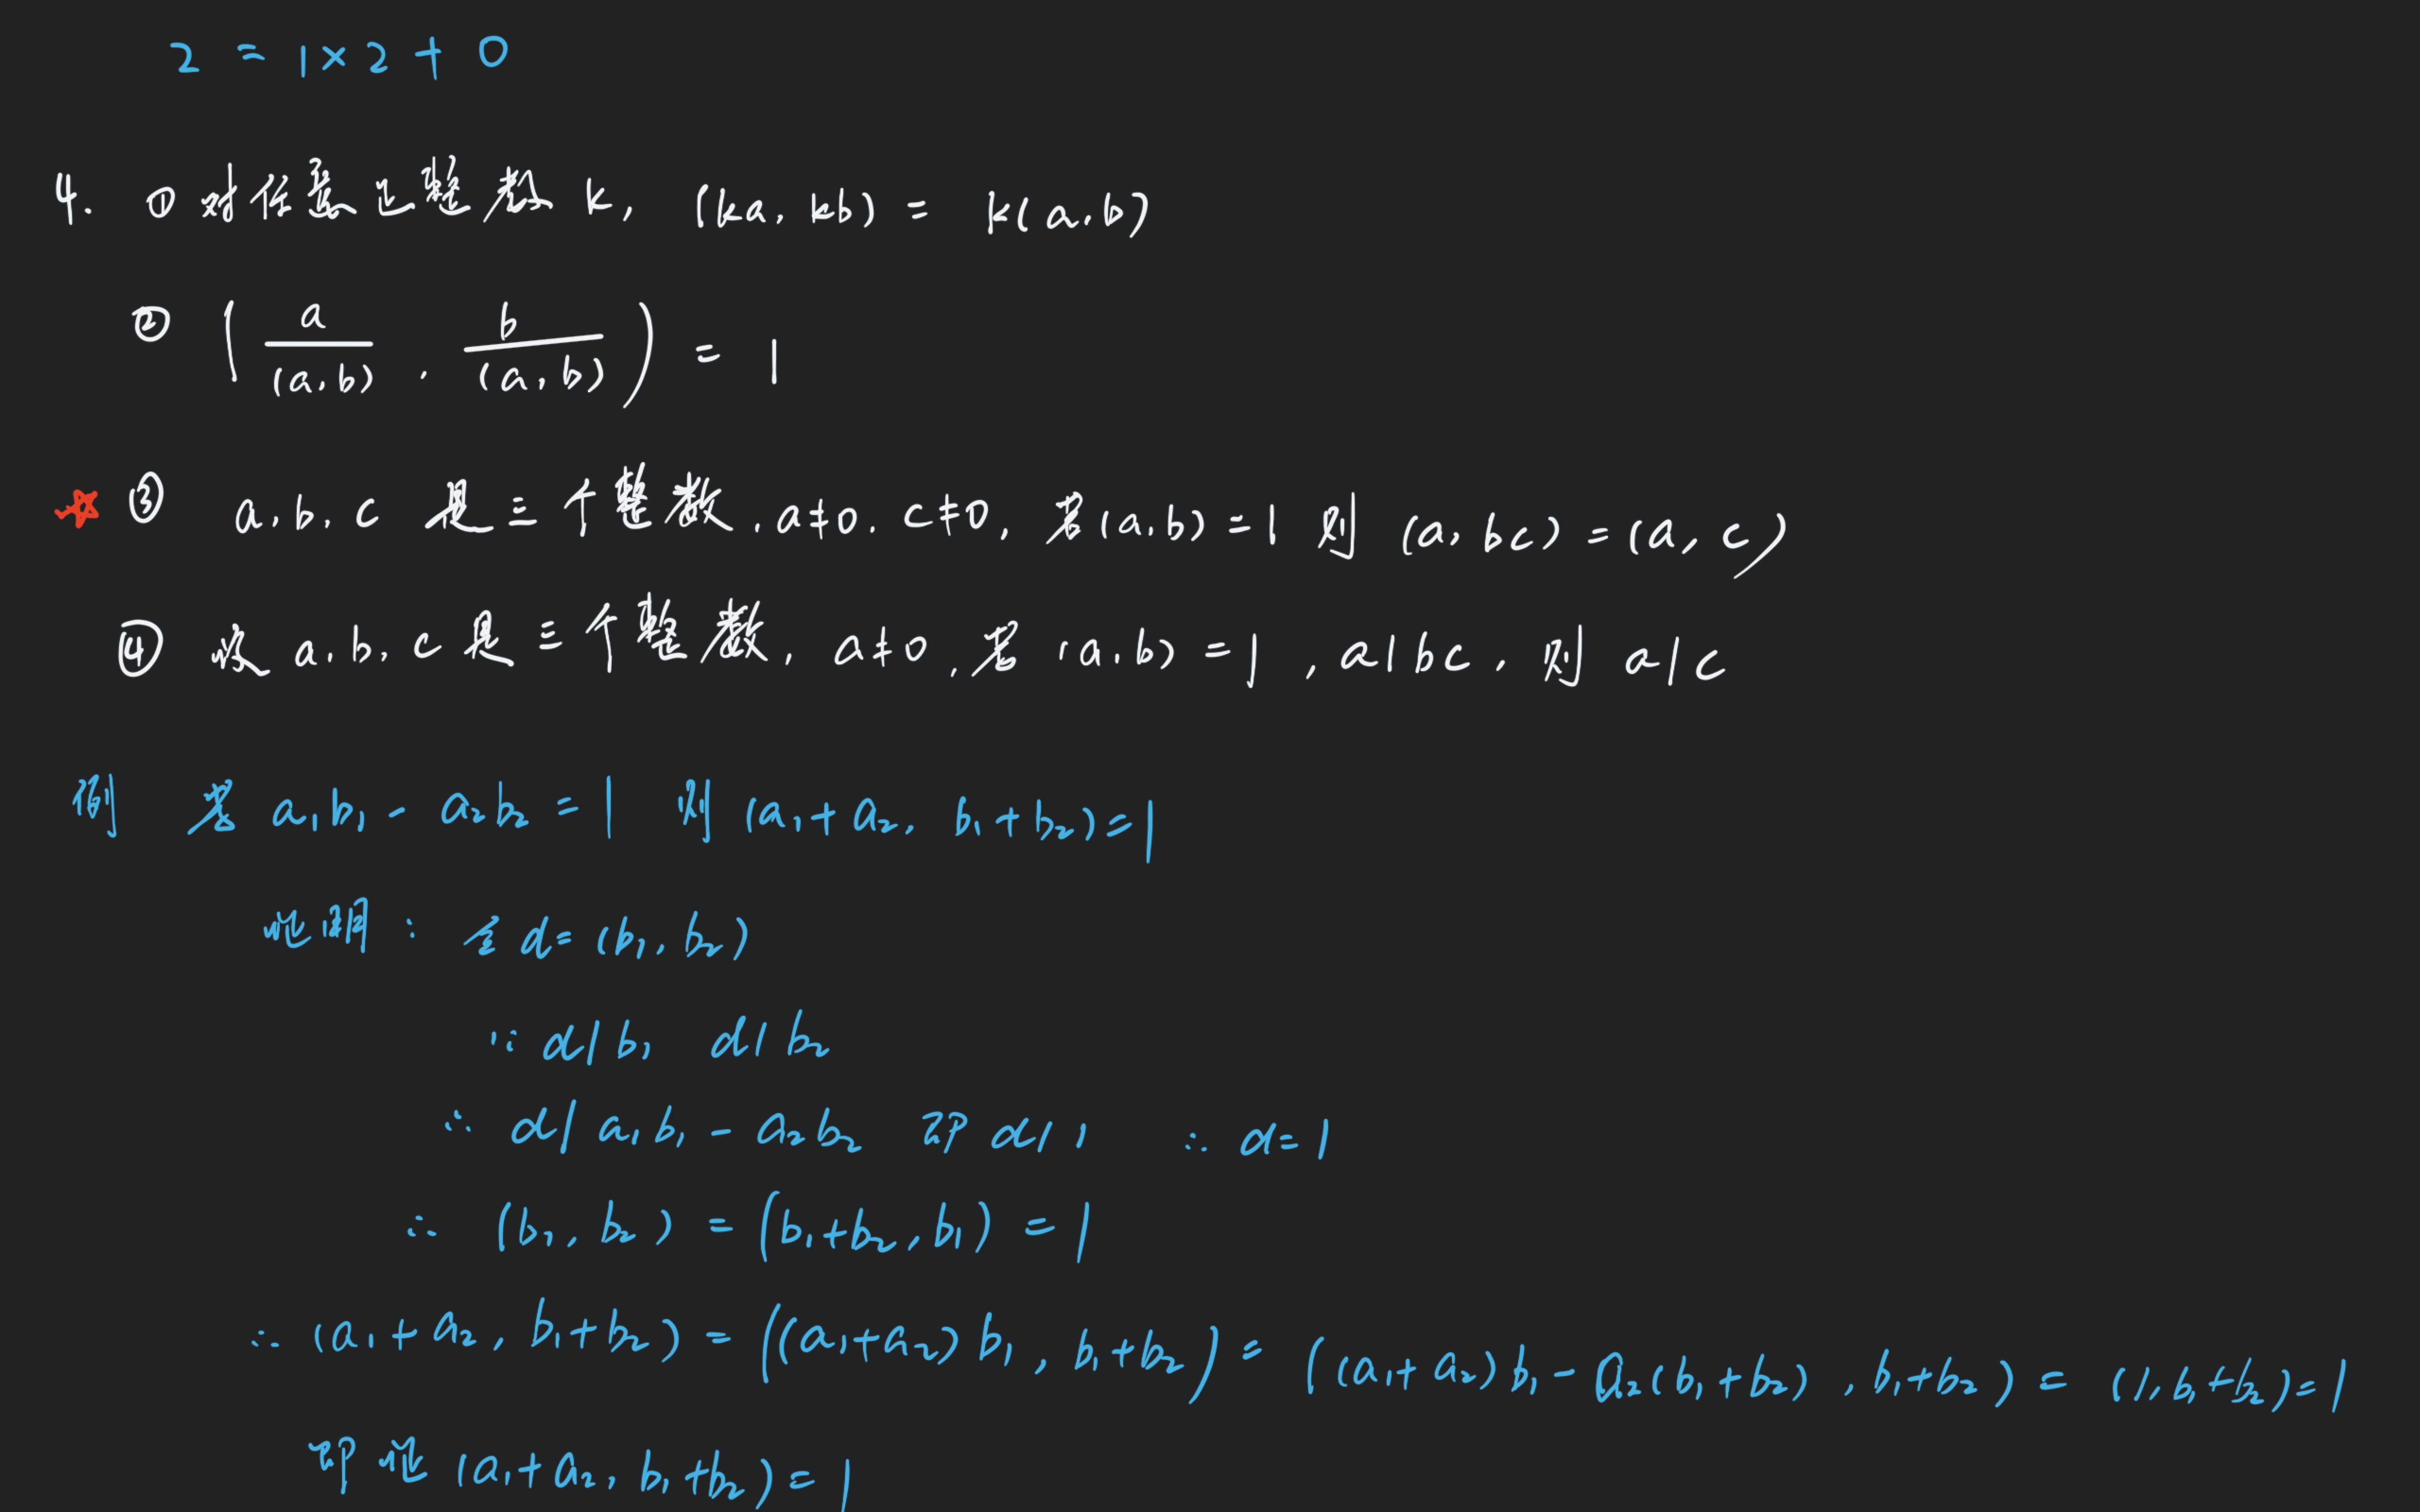 2 = 1×2+0
4. ① 对任意正整数 k, (ka, kb) = k(a,b)
② (a/(a,b), b/(a,b)) = 1
☆ ③ a, b, c 是三个整数, a≠0, c≠0, 若(a,b)=1 则 (a, bc) = (a, c)
④ 设 a, b, c 是三个整数, a≠0, 若 (a,b) = 1, a|bc, 则 a|c
例 若 a₁b₁ - a₂b₂ = 1 则 (a₁+a₂, b₁+b₂)=1
证明: 令 d = (b₁, b₂)
∵ d|b₁ d|b₂
∴ d|a₁b₁ - a₂b₂ 即 d|1 ∴ d=1
∴ (b₁, b₂) = (b₁+b₂, b₁) = 1
∴ (a₁+a₂, b₁+b₂) = ((a₁+a₂)b₁, b₁+b₂) = ((a₁+a₂)b₁-a₂(b₁+b₂), b₁+b₂) = (1, b₁+b₂)=1
即证 (a₁+a₂, b₁+b₂)=1